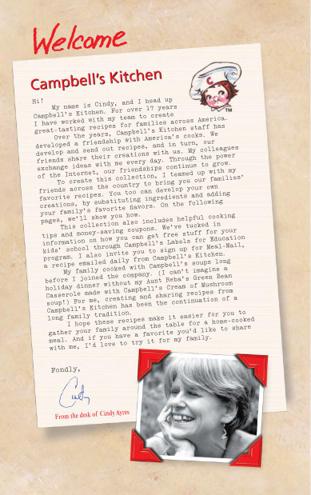 Welcome
Campbell's Kitchen
Hi!
My name is Cindy, and I head up
Campbell's Kitchen. For over 17 years
I have worked with my team to create
great-tasting recipes for families across America.
Over the years, Campbell's Kitchen staff has
developed a friendship with America's cooks. We
develop and send out recipes, and in turn, our
friends share their creations with us. My colleagues
exchange ideas with me every day. Through the power
of the Internet, our friendships continue to grow.
To create this collection, I teamed up with my
friends across the country to bring you our families'
favorite recipes. You too can develop your own
creations, by substituting ingredients and adding
your family's favorite flavors. On the following
pages, we'll show you how.
This collection also includes helpful cooking
tips and money-saving coupons. We've tucked in
information on how you can get free stuff for your
kids' school through Campbell's Labels for Education
program. I also invite you to sign up for Meal-Mail,
a recipe emailed daily from Campbell's Kitchen.
My family cooked with Campbell's soups long
before I joined the company. (I can't imagine a
holiday dinner without my Aunt Reba's Green Bean
Casserole made with Campbell's Cream of Mushroom
soup!) For me, creating and sharing recipes from
Campbell's Kitchen has been the continuation of a
long family tradition.
I hope these recipes make it easier for you to
gather your family around the table for a home-cooked
meal. And if you have a favorite you'd like to share
with me, I'd love to try it for my family.
Fondly,
Cindy
From the desk of Cindy Ayers
C
TM